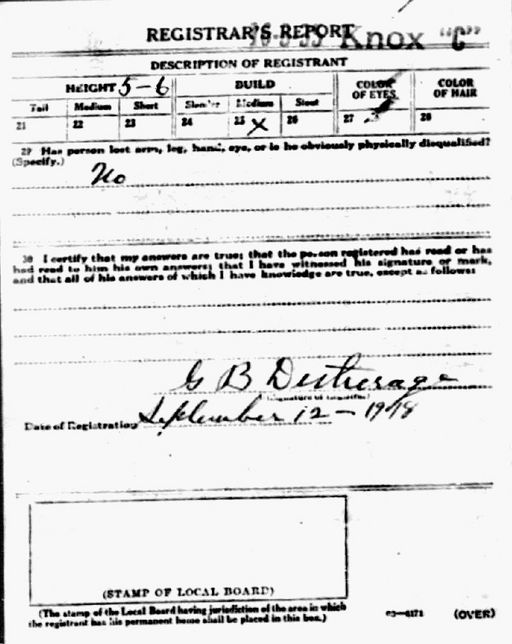 REGISTRAR'S REPORT
Knox "C"
DESCRIPTION OF REGISTRANT
HEIGHT 5-6 BUILD COLOR OF EYES COLOR OF HAIR
Tall Medium Short Slender Medium Stout
21 22 23 24 25 X 26 27 28
29 Has person lost arm, leg, hand, eye, or is he obviously physically disqualified?
(Specify.)
No
30 I certify that my answers are true; that the person registered has read or has
had read to him his own answers; that I have witnessed his signature or mark,
and that all of his answers of which I have knowledge are true, except as follows:
G B Destherage
(Signature of Registrar)
Date of Registration September 12 - 1918
(STAMP OF LOCAL BOARD)
(The stamp of the Local Board having jurisdiction of the area in which
the registrant has his permanent home shall be placed in this box.)
03-6171 (OVER)